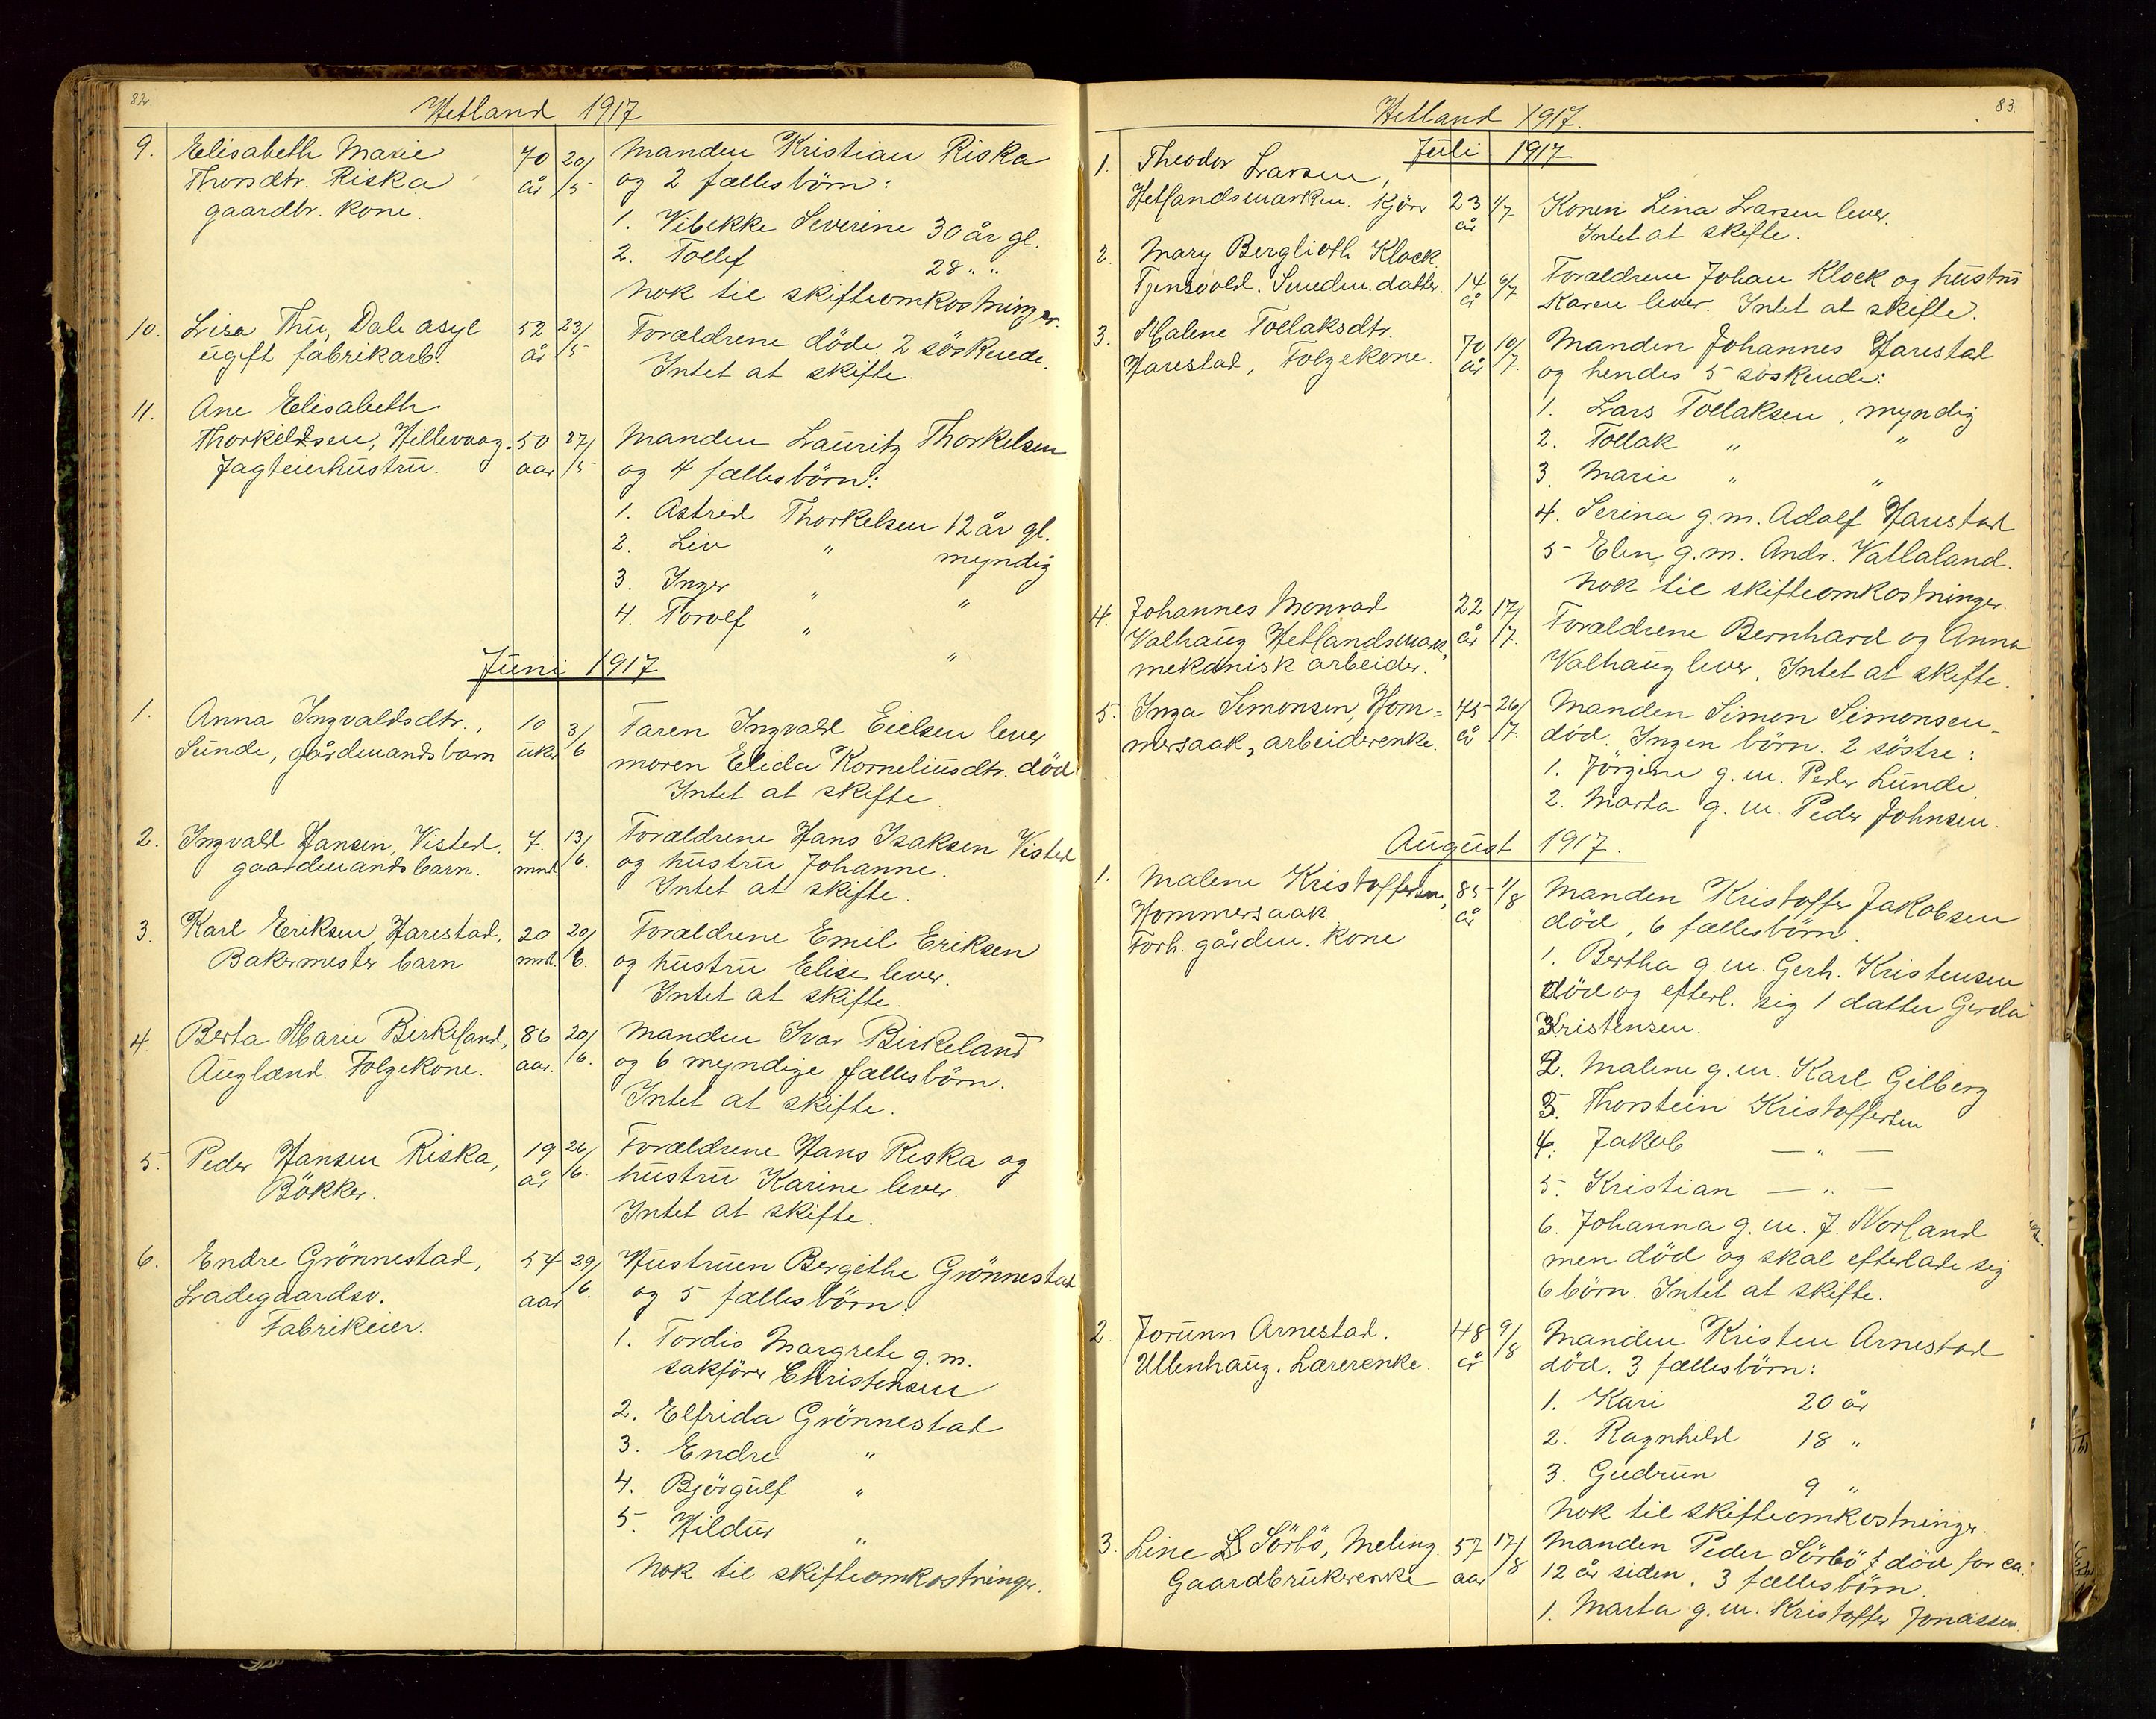 82.
Hetland 1917
9. Elisabeth Marie 70 20/5 Manden Kristian Riska
Thorsdtr. Riska år og 2 fællesbörn:
gaardbr. kone. 1. Vibekke Severine 30 år gl.
2. Tollef 28 " "
Nok til skifteomkostninger.
10. Lisa Thu, Dale asyl 52 23/5 Forældrene döde, 2 söskende.
ugift fabrikarb. år Intet at skifte.
11. Ane Elisabeth
Thorkildsen, Hillevaag. 50 27/5 Manden Lauritz Thorkelsen
Jagteierhustru. aar og 4 fællesbörn:
1. Astrid Thorkelsen 12 år gl.
2. Liv " myndig
3. Inger " "
4. Torolf " "
Juni 1917
1. Anna Ingvaldsdtr., 10 3/6 Faren Ingvald Eielsen lever
Sunde, gårdmandsbarn uker moren Elida Korneliusdtr. död
Intet at skifte.
2. Ingvald Hansen, Visted, 7. 13/6. Forældrene Hans Isaksen Visted
gaardmandsbarn. mnd. og hustru Johanne.
Intet at skifte.
3. Karl Eriksen, Harestad, 20 20/6. Forældrene Emil Eriksen
Bakermester barn mnd. og hustru Elise lever.
Intet at skifte.
4. Berta Marie Birkeland, 86 20/6. Manden Ivar Birkeland
Augland. Folgekone. aar. og 6 myndige fællesbörn.
Intet at skifte.
5. Peder Hansen Riska, 19 26/6. Forældrene Hans Riska og
Bökker. år hustru Karine lever.
Intet at skifte.
6. Endre Grönnestad, 54 29/6. Hustruen Bergithe Grönnestad
Ladegaardsv. aar og 5 fællesbörn:
Fabrikeier. 1. Tordis Margrete g.m.
sakförer Christensen
2. Elfrida Grönnestad
3. Endre "
4. Björgulf "
5. Hildur "
Nok til skifteomkostninger.
83.
Hetland 1917.
Juli 1917
1. Theodor Larsen,
Hetlandsmarken. Kjörer 23 1/7 Konen Lina Larsen lever.
år Intet at skifte.
2. Mary Berglioth Klock
Tjensvold. Smeden datter. 14 6/7. Forældrene Johan Klock og hustru
år Karen lever. Intet at skifte.
3. Malene Tollaksdtr. 70 10/7. Manden Johannes Harestad
Harestad, Folgekone. år og hendes 5 söskende:
1. Lars Tollaksen, myndig
2. Tollak " "
3. Marie " "
4. Serina g.m. Adolf Harestad
5. Elen g.m. Andr. Vatlaland.
Nok til skifteomkostninger.
4. Johannes Monrad 22 17/7. Forældrene Bernhard og Anna
Valhaug Hetlandsmark, år Valhaug lever. Intet at skifte.
mekanisk arbeider.
5. Inga Simonsen, Hom= 75 26/7. Manden Simon Simonsen
mersaak, arbeiderenke. år död. Ingen börn. 2 söstre:
1. Jörgine g.m. Peder Lunde.
2. Marta g.m. Peder Johnsen.
August 1917.
1. Malene Kristoffersen, 85 1/8 Manden Kristoffer Jakobsen
Hommersaak år död, 6 fællesbörn.
Forh. gården. kone 1. Bertha g.m. Gerh. Kristensen
död og efterl. sig 1 datter Gerda
Kristensen.
2. Malene g.m. Karl Gilberg
3. Thorstein Kristoffersen
4. Jakob — " —
5. Kristian — " —
6. Johanna g.m. J. Norland
men död og skal efterlade sig
6 börn. Intet at skifte.
2. Jorunn Arnestad. 48 9/8 Manden Kristen Arnestad
Ullenhaug. Lærerenke. år död. 3 fællesbörn:
1. Kari 20 år
2. Ragnhild 18 "
3. Gudrun 9 "
Nok til skifteomkostninger.
3. Line Sörbö, Meling. 57 17/8 Manden Peder Sörbö död for ca.
Gaardbrukerenke aar 12 år siden. 3 fællesbörn.
1. Marta g.m. Kristoffer Jonassen.